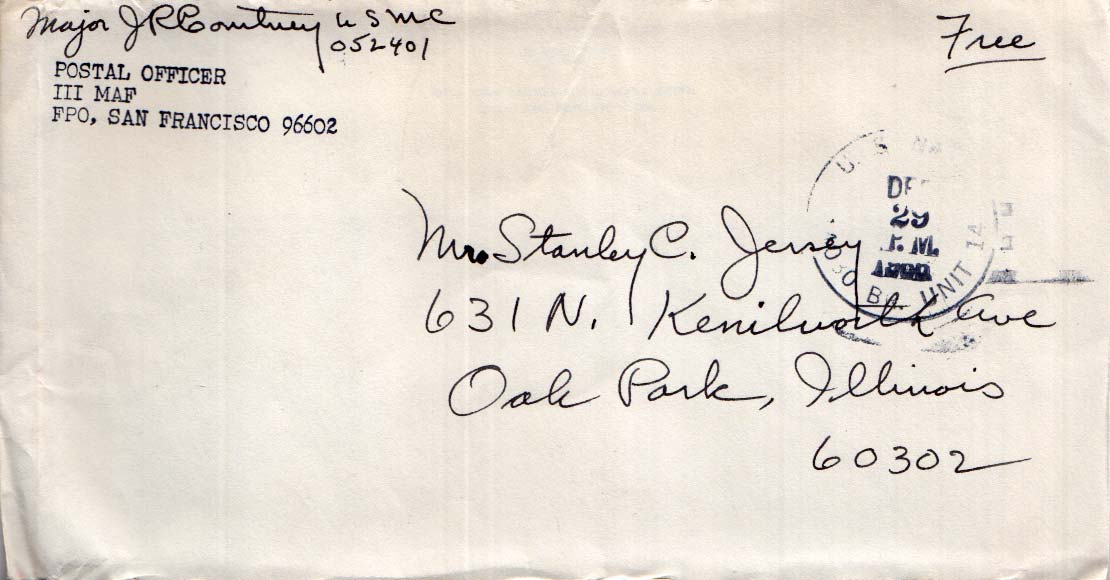 Major J R Courtney USMC
052401
POSTAL OFFICER
III MAF
FPO, SAN FRANCISCO 96602
Free
U. S.
29
.M.
BR. UNIT 14
Mr. Stanley C. Jersey
631 N. Kenilworth Ave
Oak Park, Illinois
60302